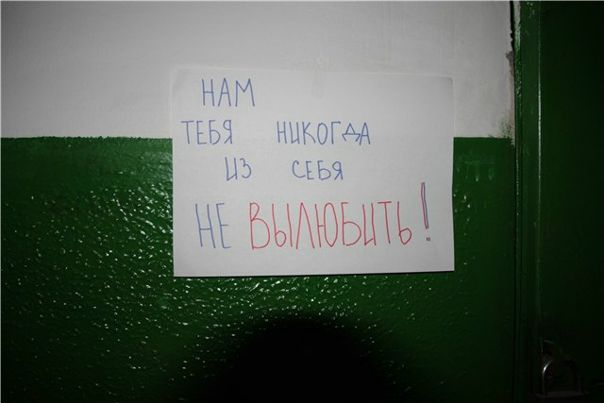 НАМ
ТЕБЯ НИКОГДА
ИЗ СЕБЯ
НЕ ВЫЛЮБИТЬ!